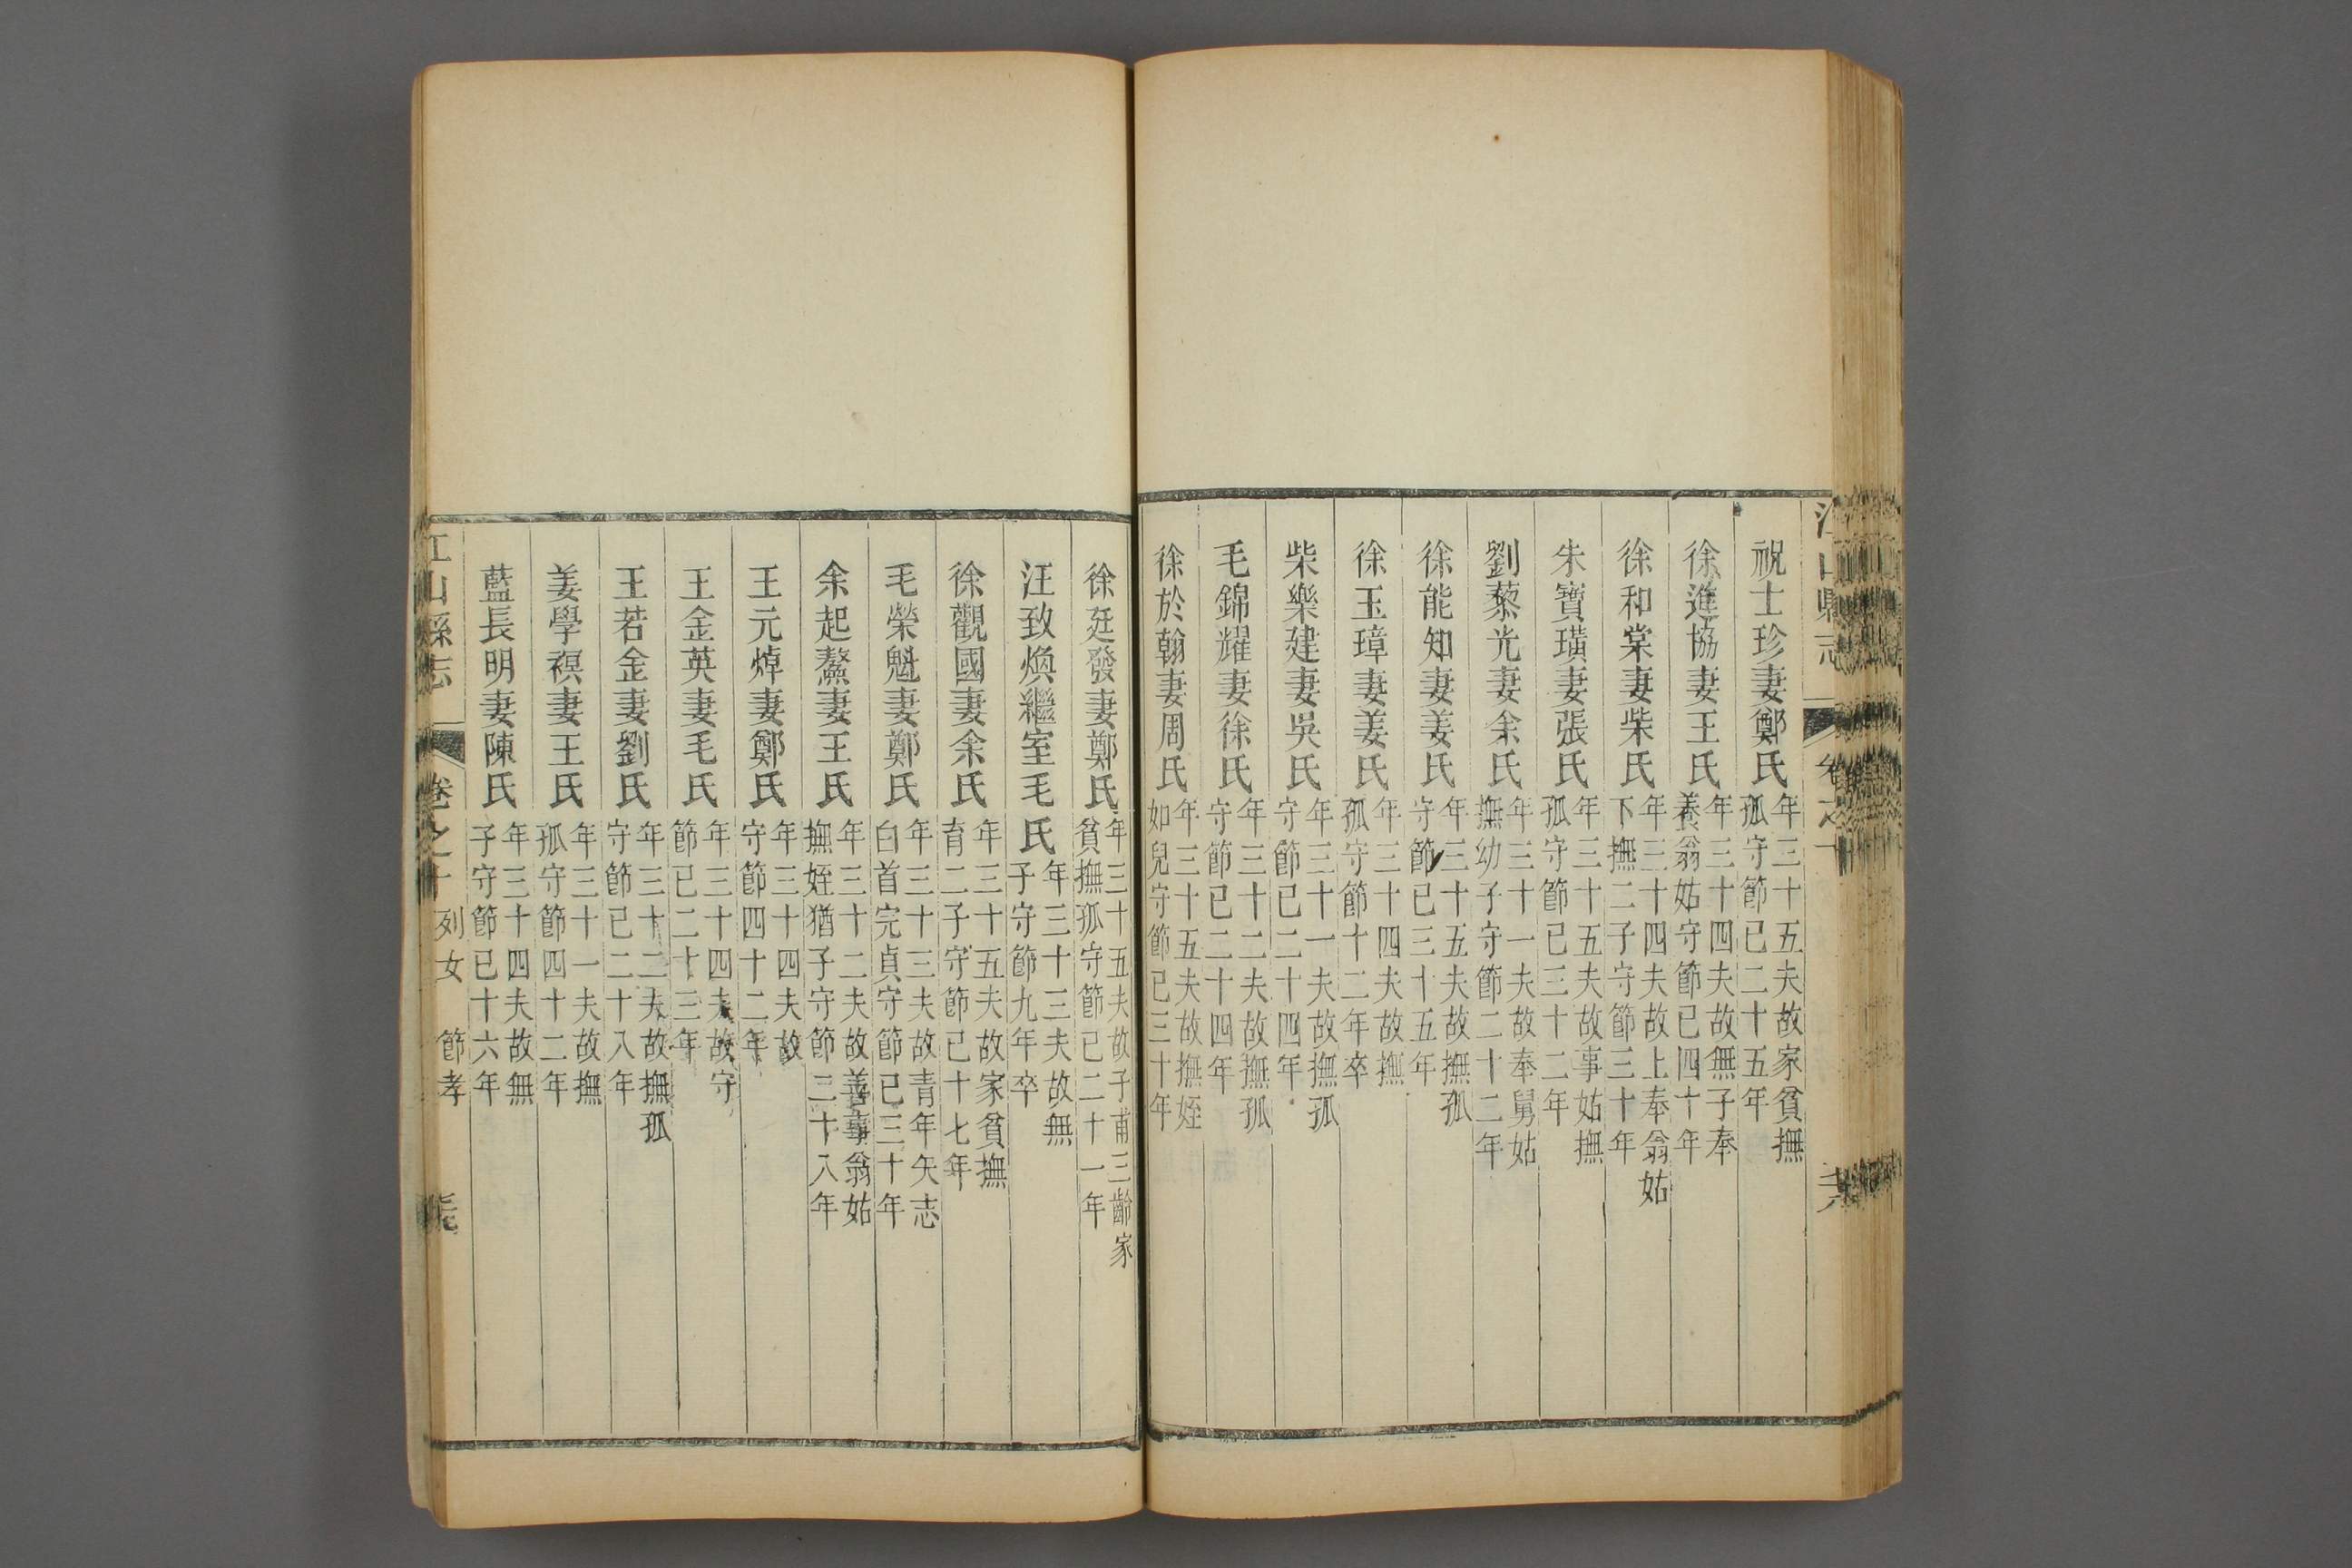 祝士珍妻鄭氏 年三十五夫故家貧撫孤守節已二十五年
徐進協妻王氏 年三十四夫故無子奉養翁姑守節已四十年
徐和棠妻柴氏 年三十四夫故上奉翁姑下撫二子守節三十年
朱寶璜妻張氏 年三十五夫故事姑撫孤守節已三十二年
劉藜光妻余氏 年三十一夫故奉舅姑撫幼子守節二十二年
徐能知妻姜氏 年三十五夫故撫孤守節已三十五年
徐玉璋妻姜氏 年三十四夫故撫孤守節十二年卒
柴樂建妻吳氏 年三十一夫故撫孤守節已二十四年
毛錦耀妻徐氏 年三十二夫故撫孤守節已二十四年
徐於翰妻周氏 年三十五夫故撫姪如兒守節已三十年
徐廷發妻鄭氏 年三十五夫故子甫三齡家貧撫孤守節已二十一年
汪致煥繼室毛氏 年三十三夫故無子守節九年卒
徐觀國妻余氏 年三十五夫故家貧撫育二子守節已十七年
毛榮魁妻鄭氏 年三十三夫故青年矢志白首完貞守節已三十年
余起鰲妻王氏 年三十二夫故善事翁姑撫姪猶子守節二十八年
王元焯妻鄭氏 年三十四夫故守節四十二年
王金英妻毛氏 年三十四夫故守節已二十三年
王若金妻劉氏 年三十二夫故撫孤守節已二十八年
姜學禩妻王氏 年三十一夫故撫孤守節四十二年
藍長明妻陳氏 年三十四夫故無子守節已十六年
江山縣志 卷之十 列女 節孝